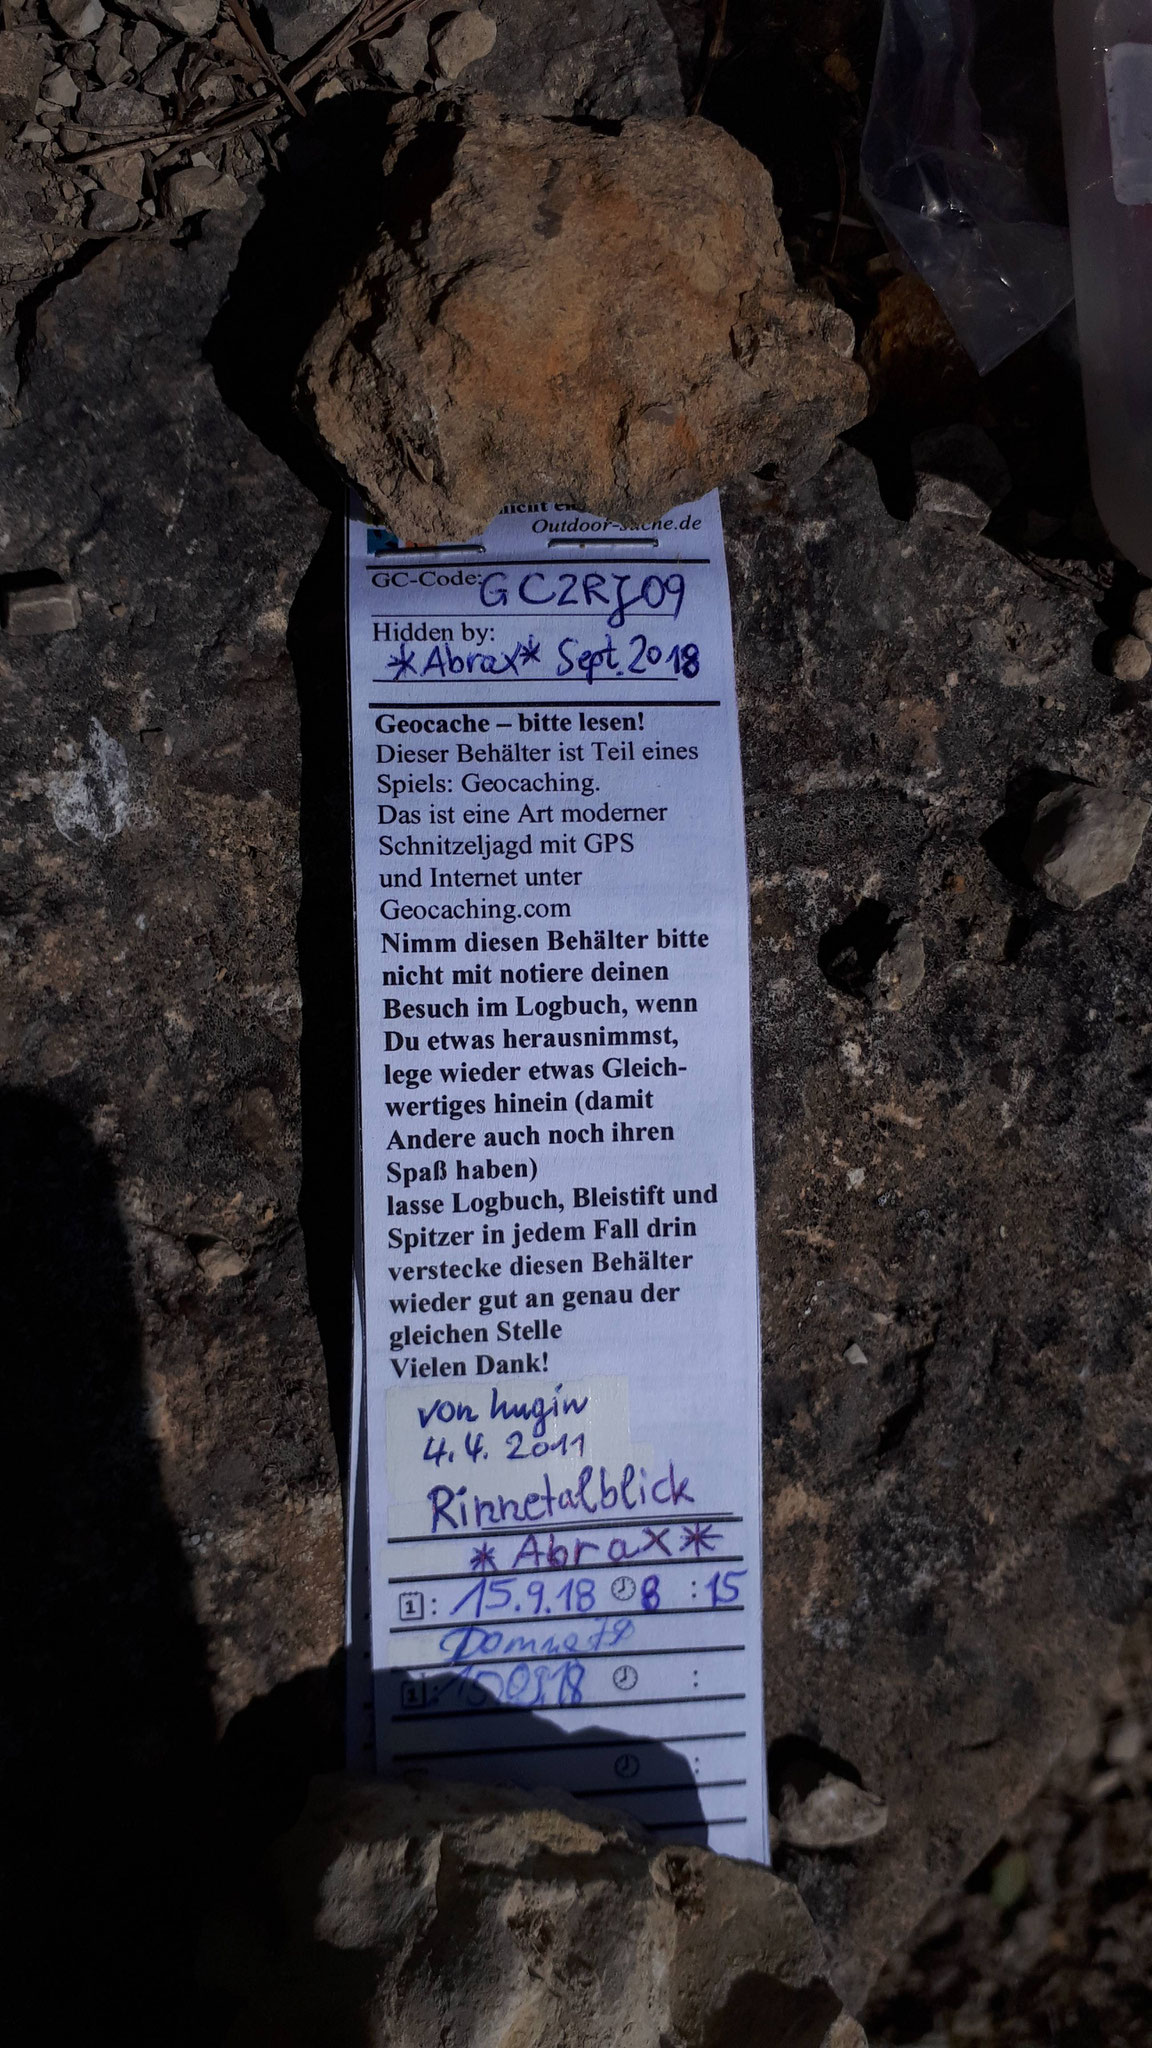 nicht
Outdoor-Sache.de
GC-Code: GC2RJ09
Hidden by:
*Abrax* Sept. 2018
Geocache – bitte lesen!
Dieser Behälter ist Teil eines
Spiels: Geocaching.
Das ist eine Art moderner
Schnitzeljagd mit GPS
und Internet unter
Geocaching.com
Nimm diesen Behälter bitte
nicht mit notiere deinen
Besuch im Logbuch, wenn
Du etwas herausnimmst,
lege wieder etwas Gleich-
wertiges hinein (damit
Andere auch noch ihren
Spaß haben)
lasse Logbuch, Bleistift und
Spitzer in jedem Fall drin
verstecke diesen Behälter
wieder gut an genau der
gleichen Stelle
Vielen Dank!
von hugin
4.4. 2011
Rinnetalblick
*Abrax*
1: 15.9.18 8 :15
1: 15.09.18 :
: